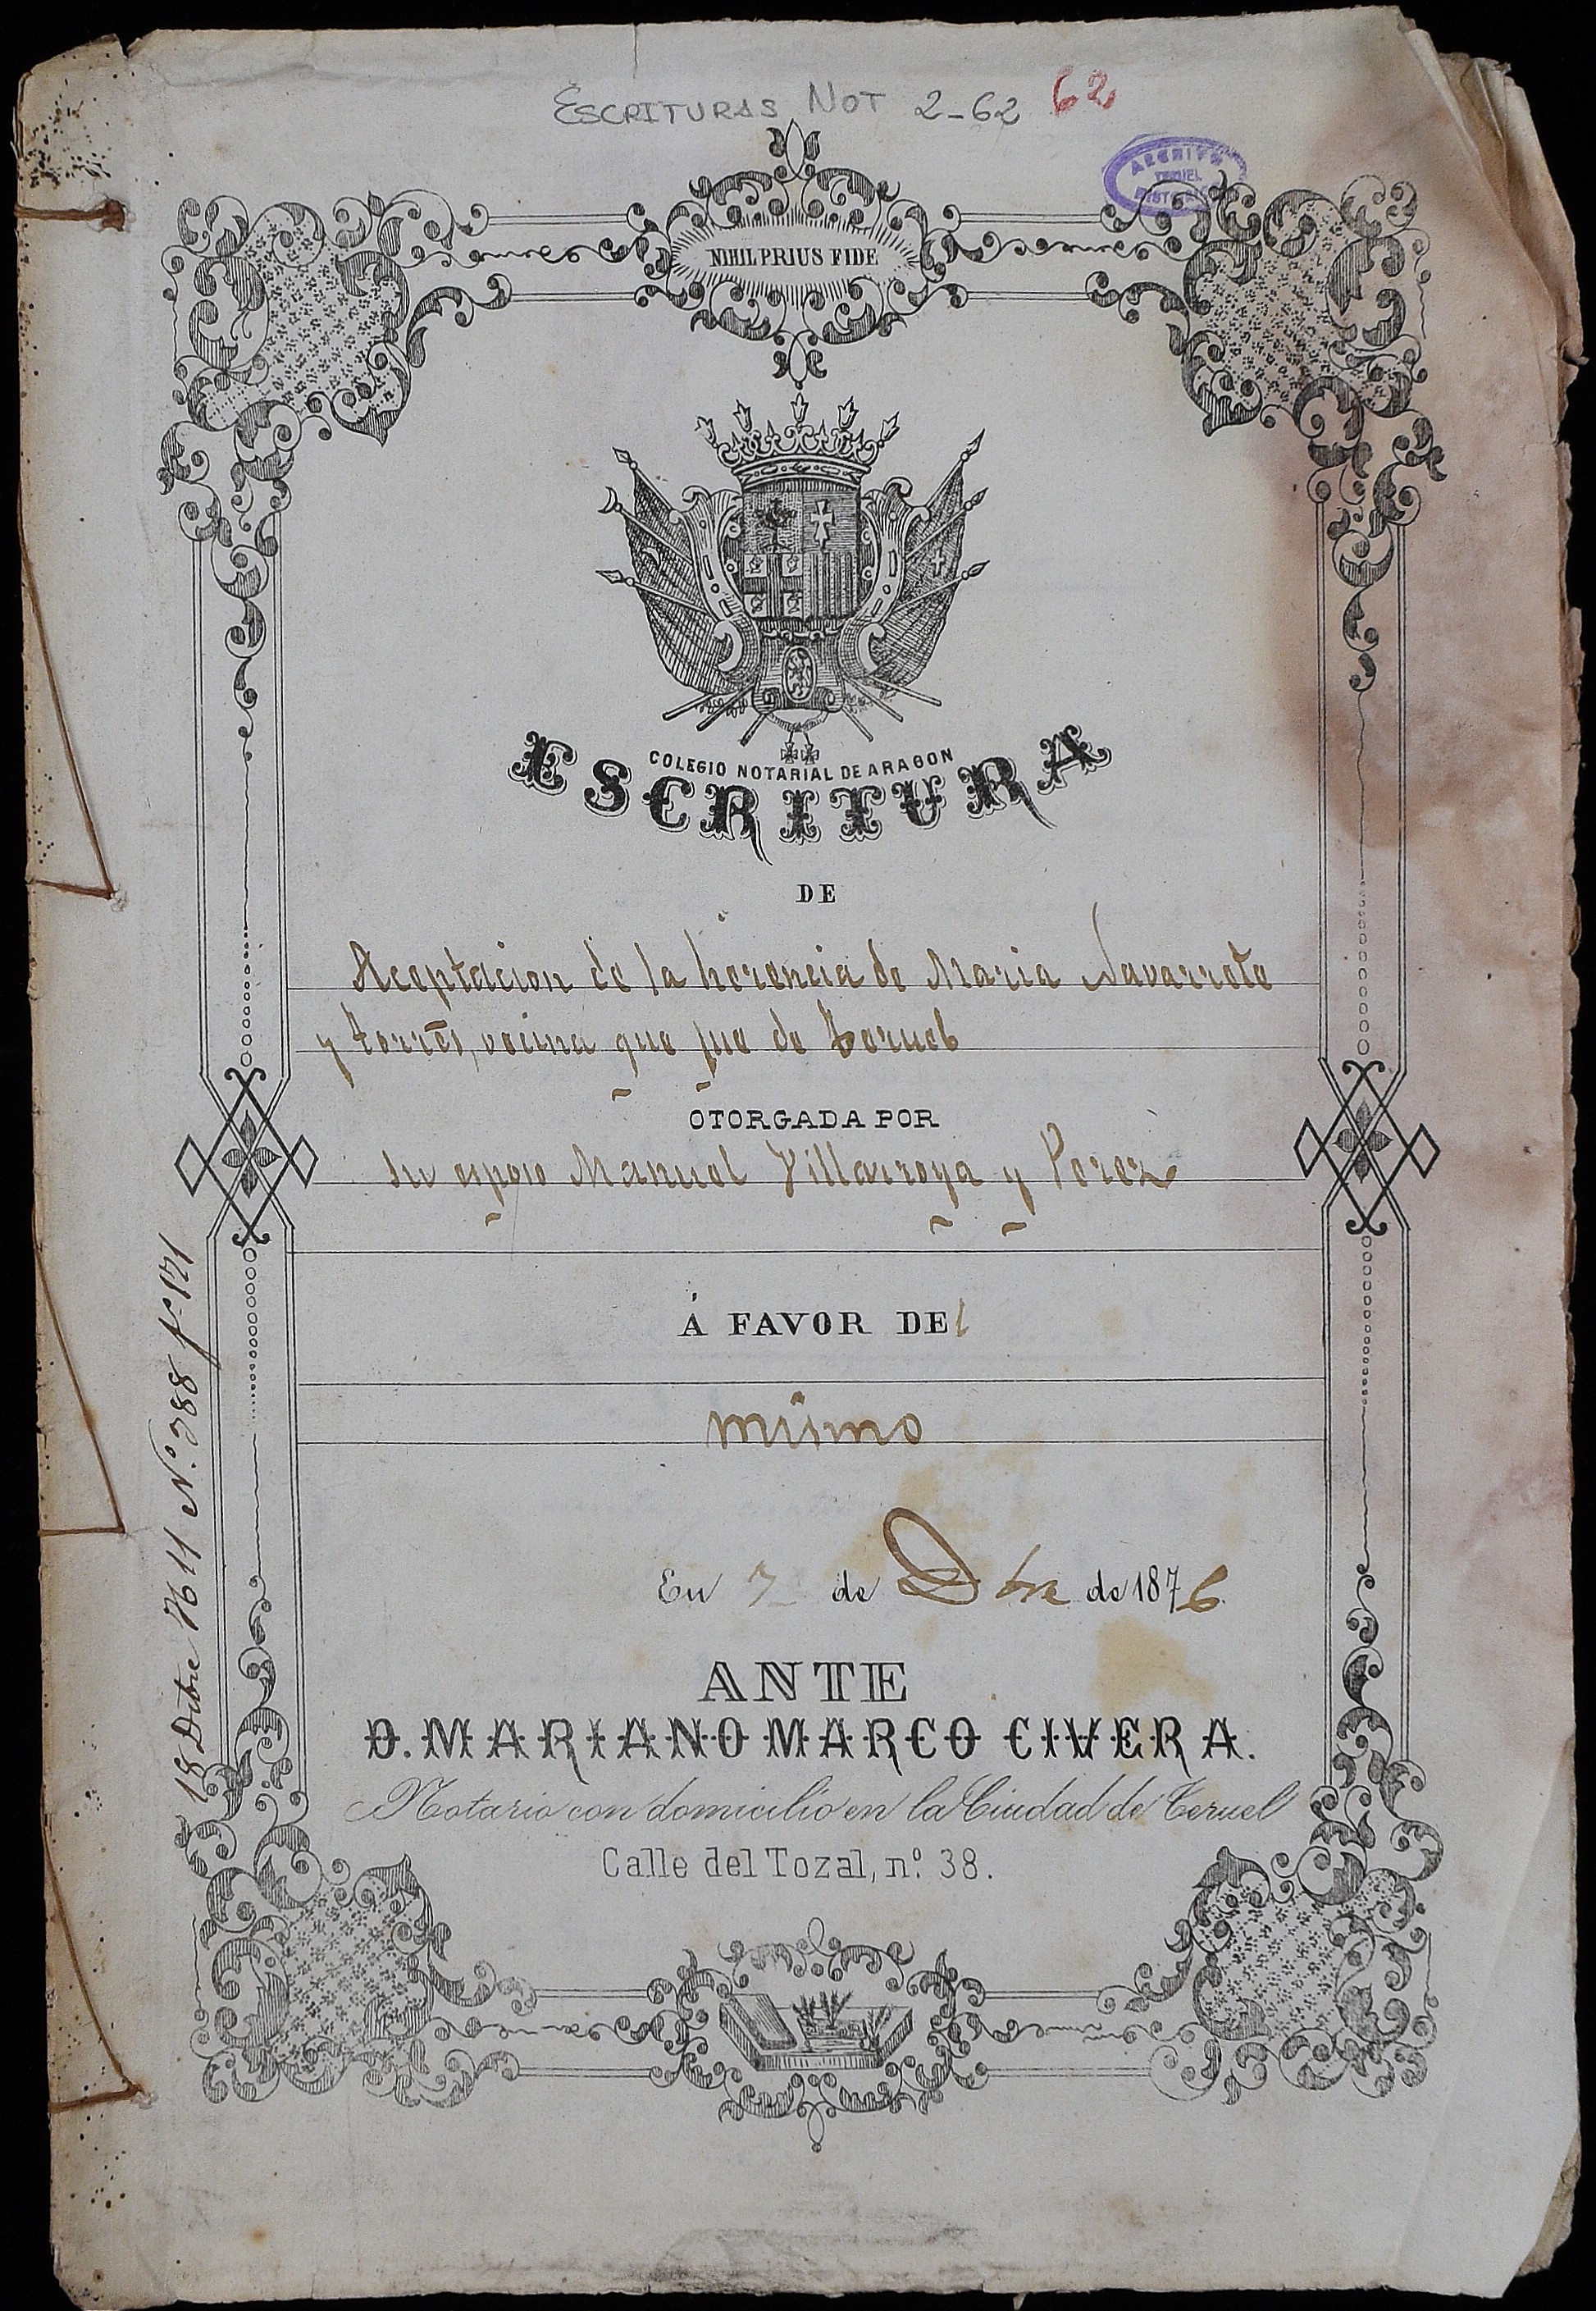 ESCRITURAS NOT 2-62 62
ARCHIVO
TERUEL
NIHIL PRIUS FIDE
COLEGIO NOTARIAL DE ARAGON
ESCRITURA
DE
Aceptacion de la herencia de Maria Navarrete
y torres, vecina que fue de Teruel
OTORGADA POR
su esposo Manuel Villarroya y Perez
Á FAVOR DEl
mismo
En 7 de Dbre de 1876
ANTE
D. MARIANO MARCO CIVERA.
Notario con domicilio en la Ciudad de Teruel
Calle del Tozal, nº. 38.
18 Dcbre 76 11 Nº. 288 fº 121